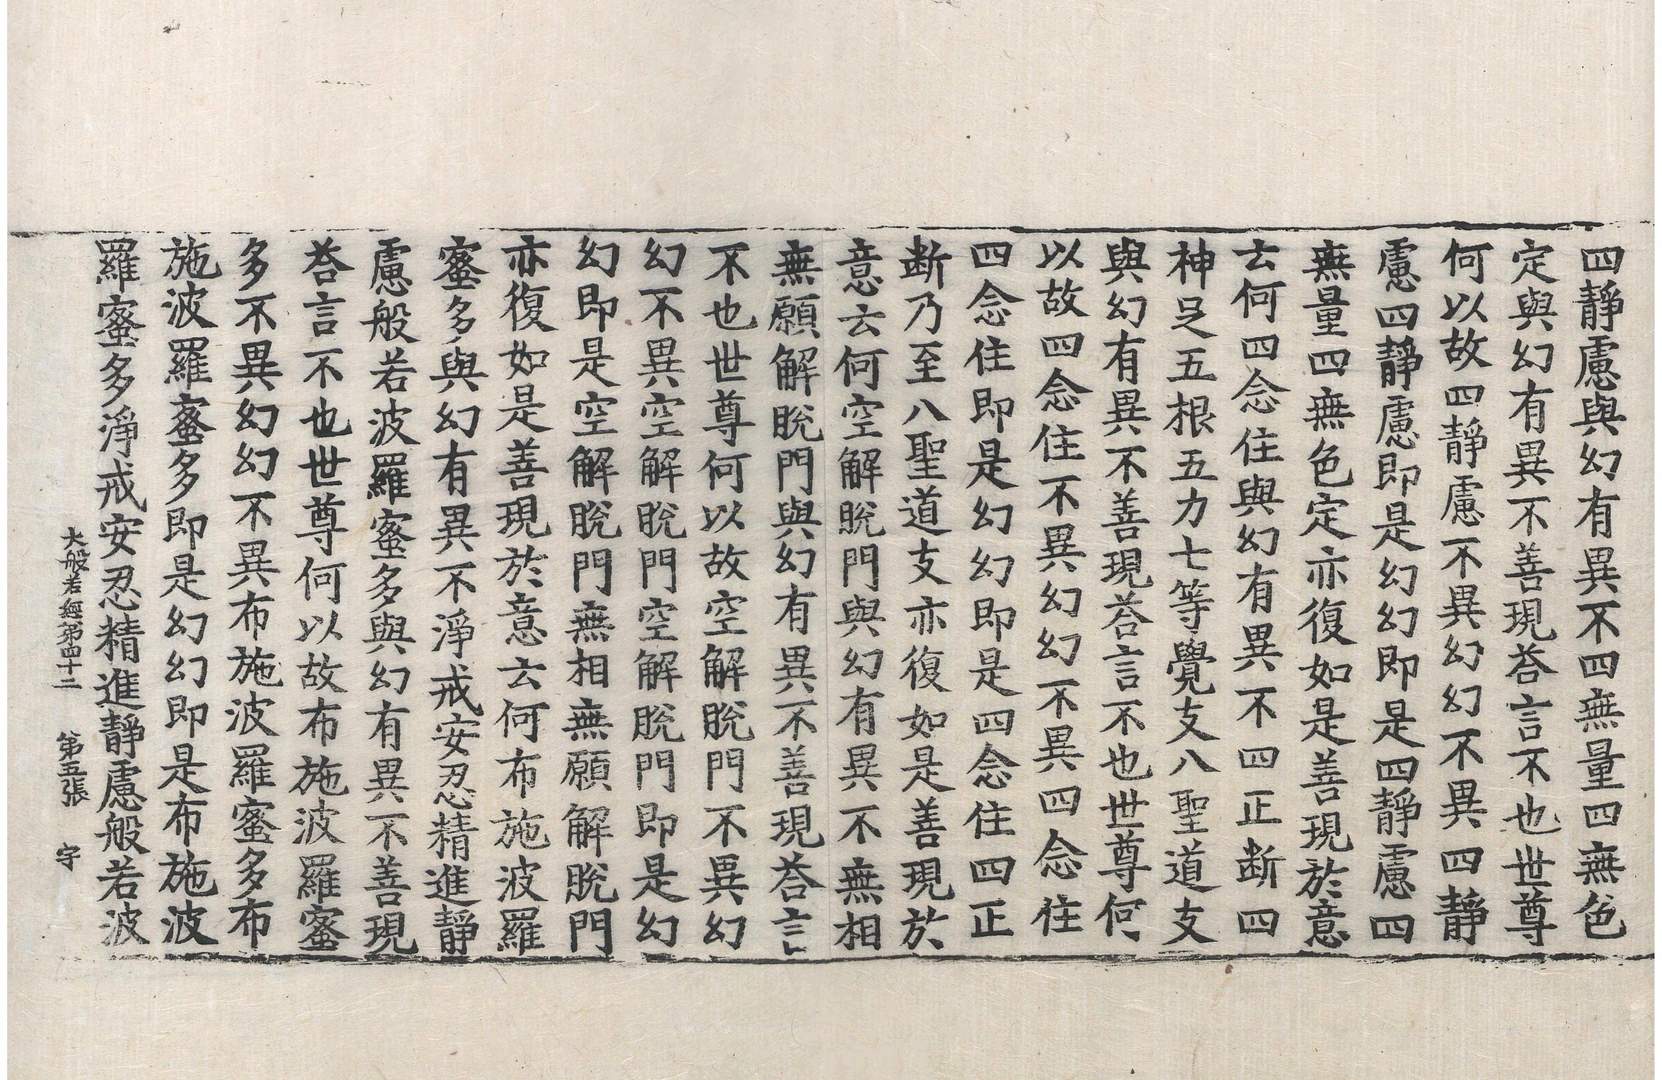 四靜慮與幻有異不四無量四無色
定與幻有異不善現荅言不也世尊
何以故四靜慮不異幻幻不異四靜
慮四靜慮即是幻幻即是四靜慮四
無量四無色定亦復如是善現於意
云何四念住與幻有異不四正断四
神足五根五力七等覺支八聖道支
與幻有異不善現荅言不也世尊何
以故四念住不異幻幻不異四念住
四念住即是幻幻即是四念住四正
断乃至八聖道支亦復如是善現於
意云何空解脫門與幻有異不無相
無願解脫門與幻有異不善現荅言
不也世尊何以故空解脫門不異幻
幻不異空解脫門空解脫門即是幻
幻即是空解脫門無相無願解脫門
亦復如是善現於意云何布施波羅
蜜多與幻有異不淨戒安忍精進靜
慮般若波羅蜜多與幻有異不善現
荅言不也世尊何以故布施波羅蜜
多不異幻幻不異布施波羅蜜多布
施波羅蜜多即是幻幻即是布施波
羅蜜多淨戒安忍精進靜慮般若波
大般若經第四十二 第五張 宇